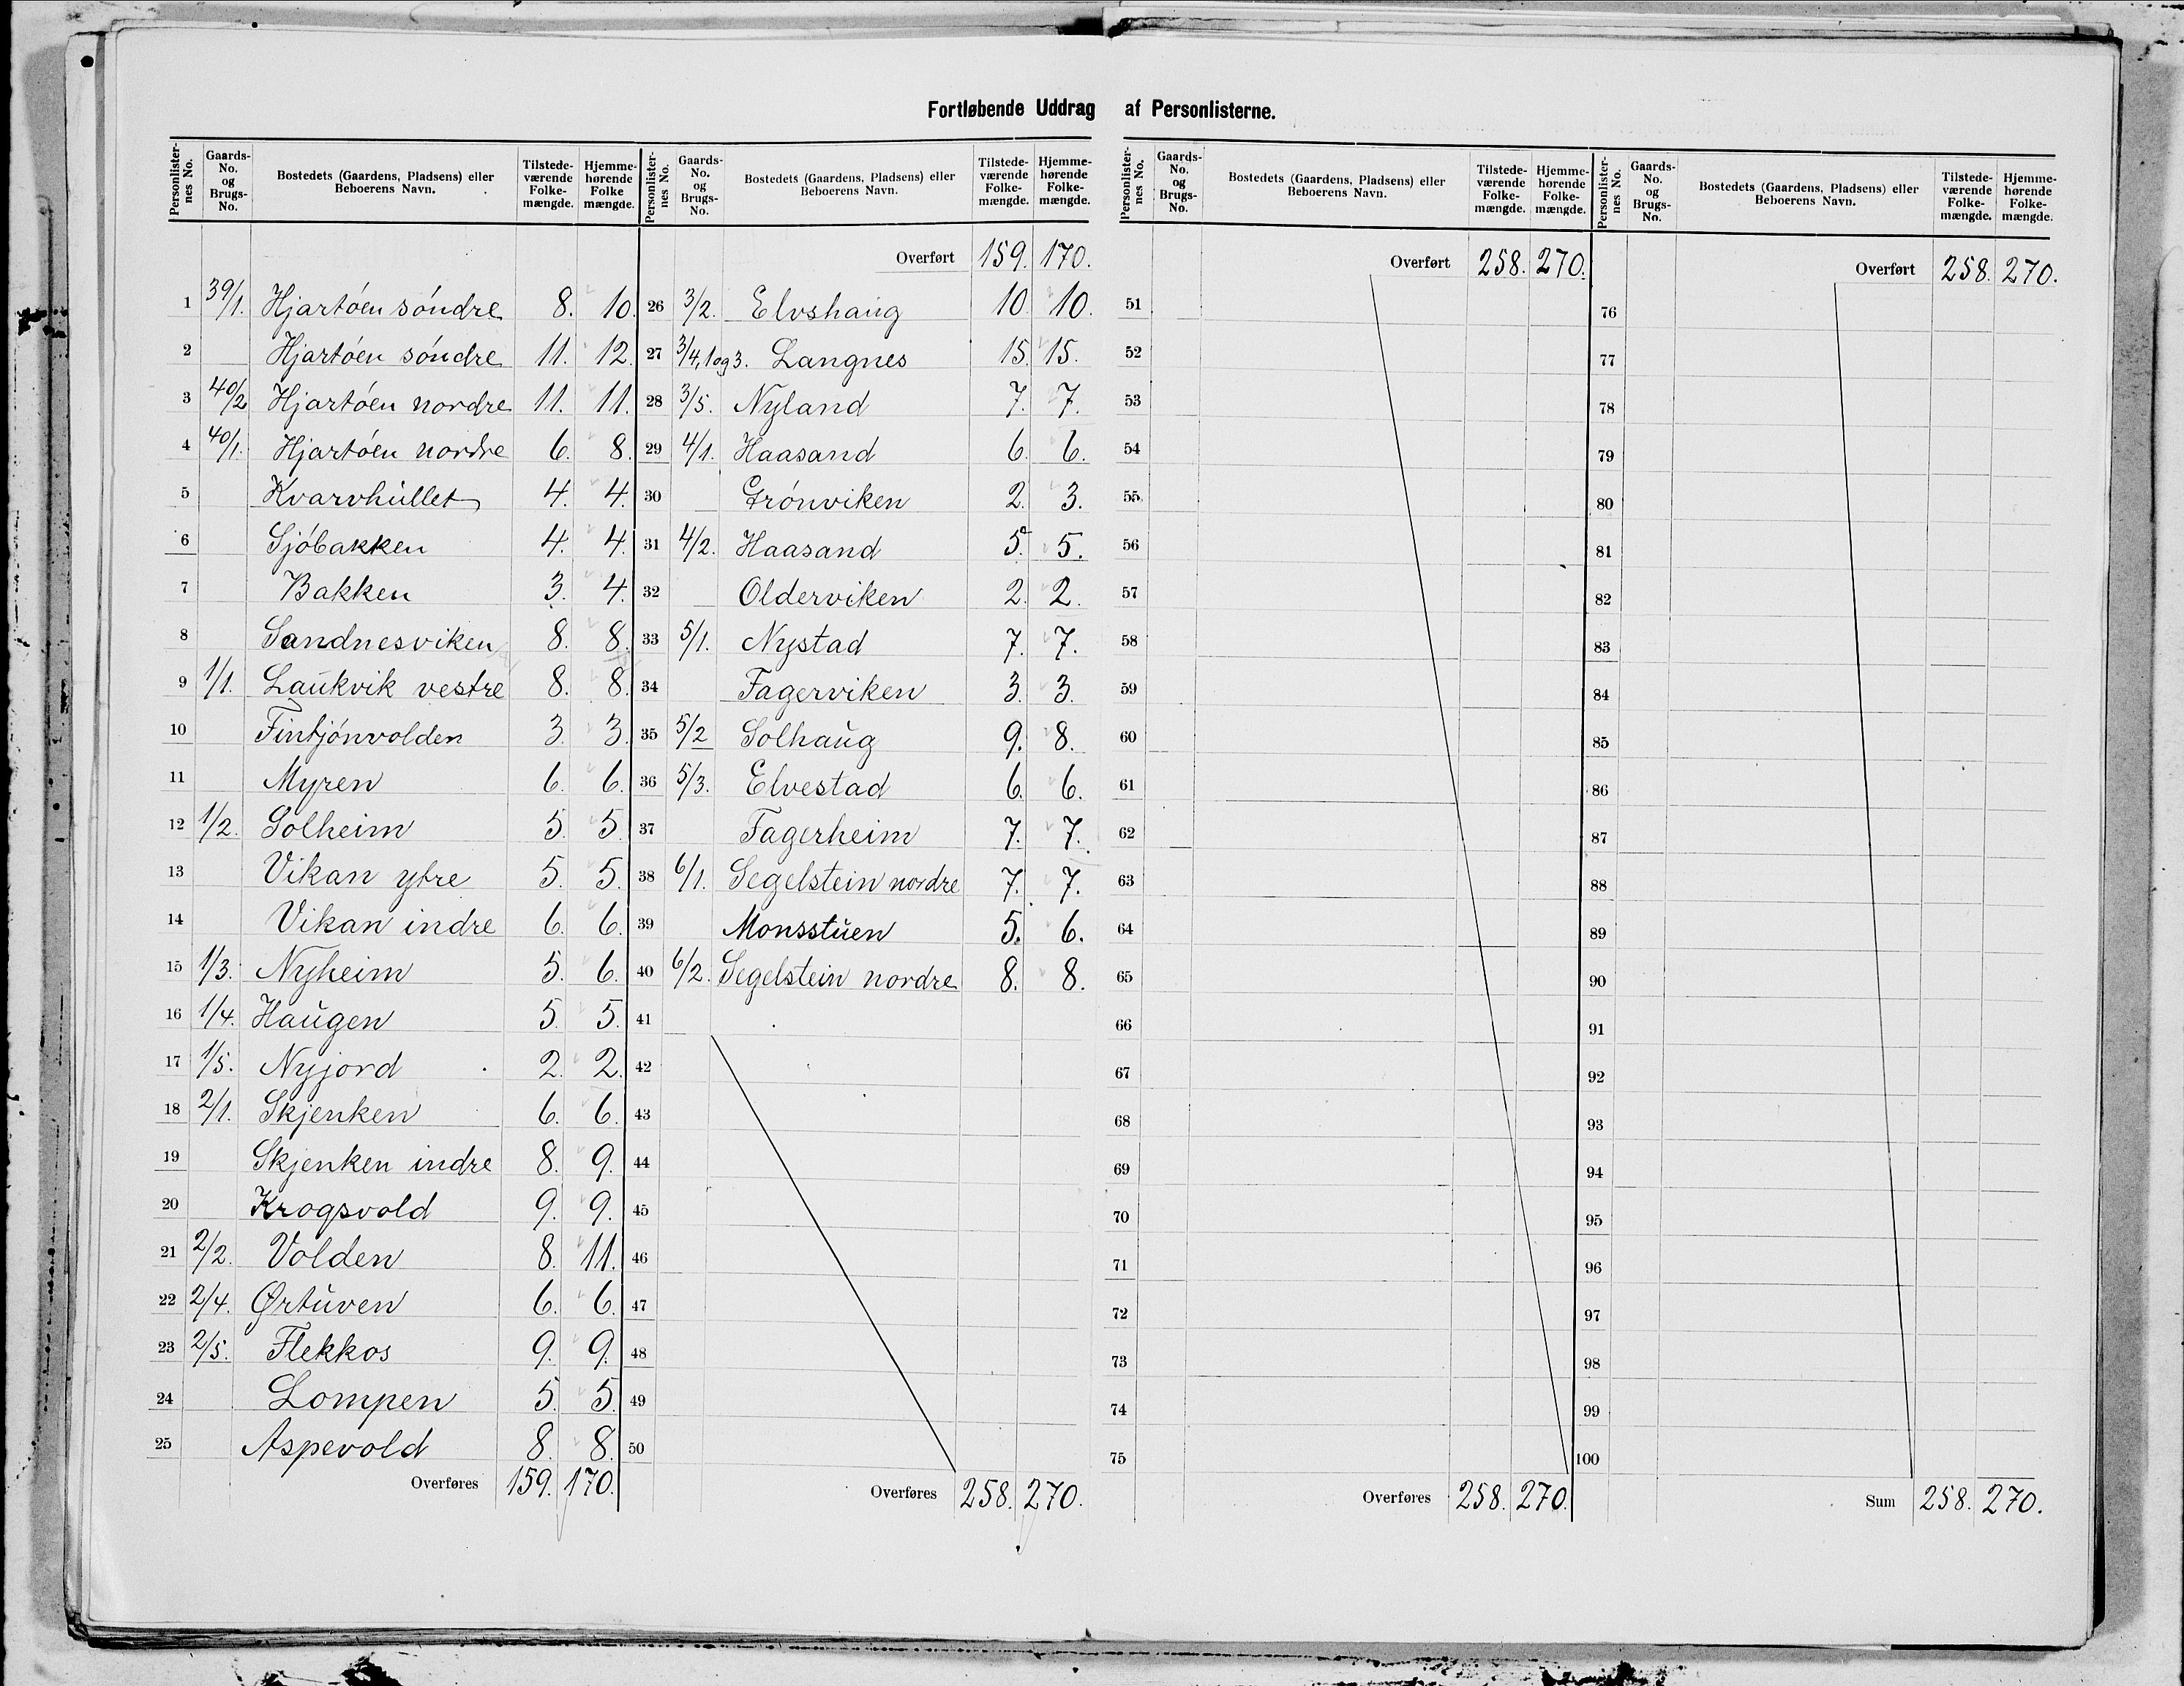 Fortløbende Uddrag af Personlisterne.
Personlister-nes No. Gaards-No. og Brugs-No. Bostedets (Gaardens, Pladsens) eller Beboerens Navn. Tilstede-værende Folke-mængde. Hjemme-hørende Folke mængde.
1 39/1. Hjartöen söndre 8. 10.
2 Hjartöen söndre 11. 12.
3 40/2 Hjartöen nordre 11. 11.
4 40/1. Hjartöen nordre 6. 8.
5 Kvarvhullet 4. 4.
6 Sjöbakken 4. 4.
7 Bakken 3. 4.
8 Sandnesviken 8. 8.
9 1/1. Laukvik vestre 8. 8.
10 Fintjönvolden 3. 3.
11 Myren 6. 6.
12 1/2. Solheim 5. 5.
13 Vikan ytre 5. 5.
14 Vikan indre 6. 6.
15 1/3. Nyheim 5. 6.
16 1/4. Haugen 5. 5.
17 1/5. Nyjord 2. 2.
18 2/1. Skjenken 6. 6.
19 Skjenken indre 8. 9.
20 Krogsvold 9. 9.
21 2/2. Volden 8. 11.
22 2/4. Ørtuven 6. 6.
23 2/5. Flekkos 9. 9.
24 Lompen 5. 5.
25 Aspevold 8. 8.
Overføres 159. 170.
Personlister-nes No. Gaards-No. og Brugs-No. Bostedets (Gaardens, Pladsens) eller Beboerens Navn. Tilstede-værende Folke-mængde. Hjemme-hørende Folke-mængde.
Overført 159. 170.
26 3/2. Elvshaug 10. 10.
27 3/4, 1 og 3. Langnes 15. 15.
28 3/5. Nyland 7. 7.
29 4/1. Haasand 6. 6.
30 Grönviken 2. 3.
31 4/2. Haasand 5. 5.
32 Olderviken 2. 2.
33 5/1. Nystad 7. 7.
34 Fagerviken 3. 3.
35 5/2 Solhaug 9. 8.
36 5/3. Elvestad 6. 6.
37 Fagerheim 7. 7.
38 6/1. Segelstein nordre 7. 7.
39 Monsstuen 5. 6.
40 6/2. Segelstein nordre 8. 8.
41
42
43
44
45
46
47
48
49
50
Overføres 258. 270.
Personlister-nes No. Gaards-No. og Brugs-No. Bostedets (Gaardens, Pladsens) eller Beboerens Navn. Tilstede-værende Folke-mængde. Hjemme-hørende Folke-mængde.
Overført 258. 270.
51
52
53
54
55
56
57
58
59
60
61
62
63
64
65
66
67
68
69
70
71
72
73
74
75
Overføres 258. 270.
Personlister-nes No. Gaards-No. og Brugs-No. Bostedets (Gaardens, Pladsens) eller Beboerens Navn. Tilstede-værende Folke-mængde. Hjemme-hørende Folke-mængde.
Overført 258. 270.
76
77
78
79
80
81
82
83
84
85
86
87
88
89
90
91
92
93
94
95
96
97
98
99
100
Sum 258. 270.